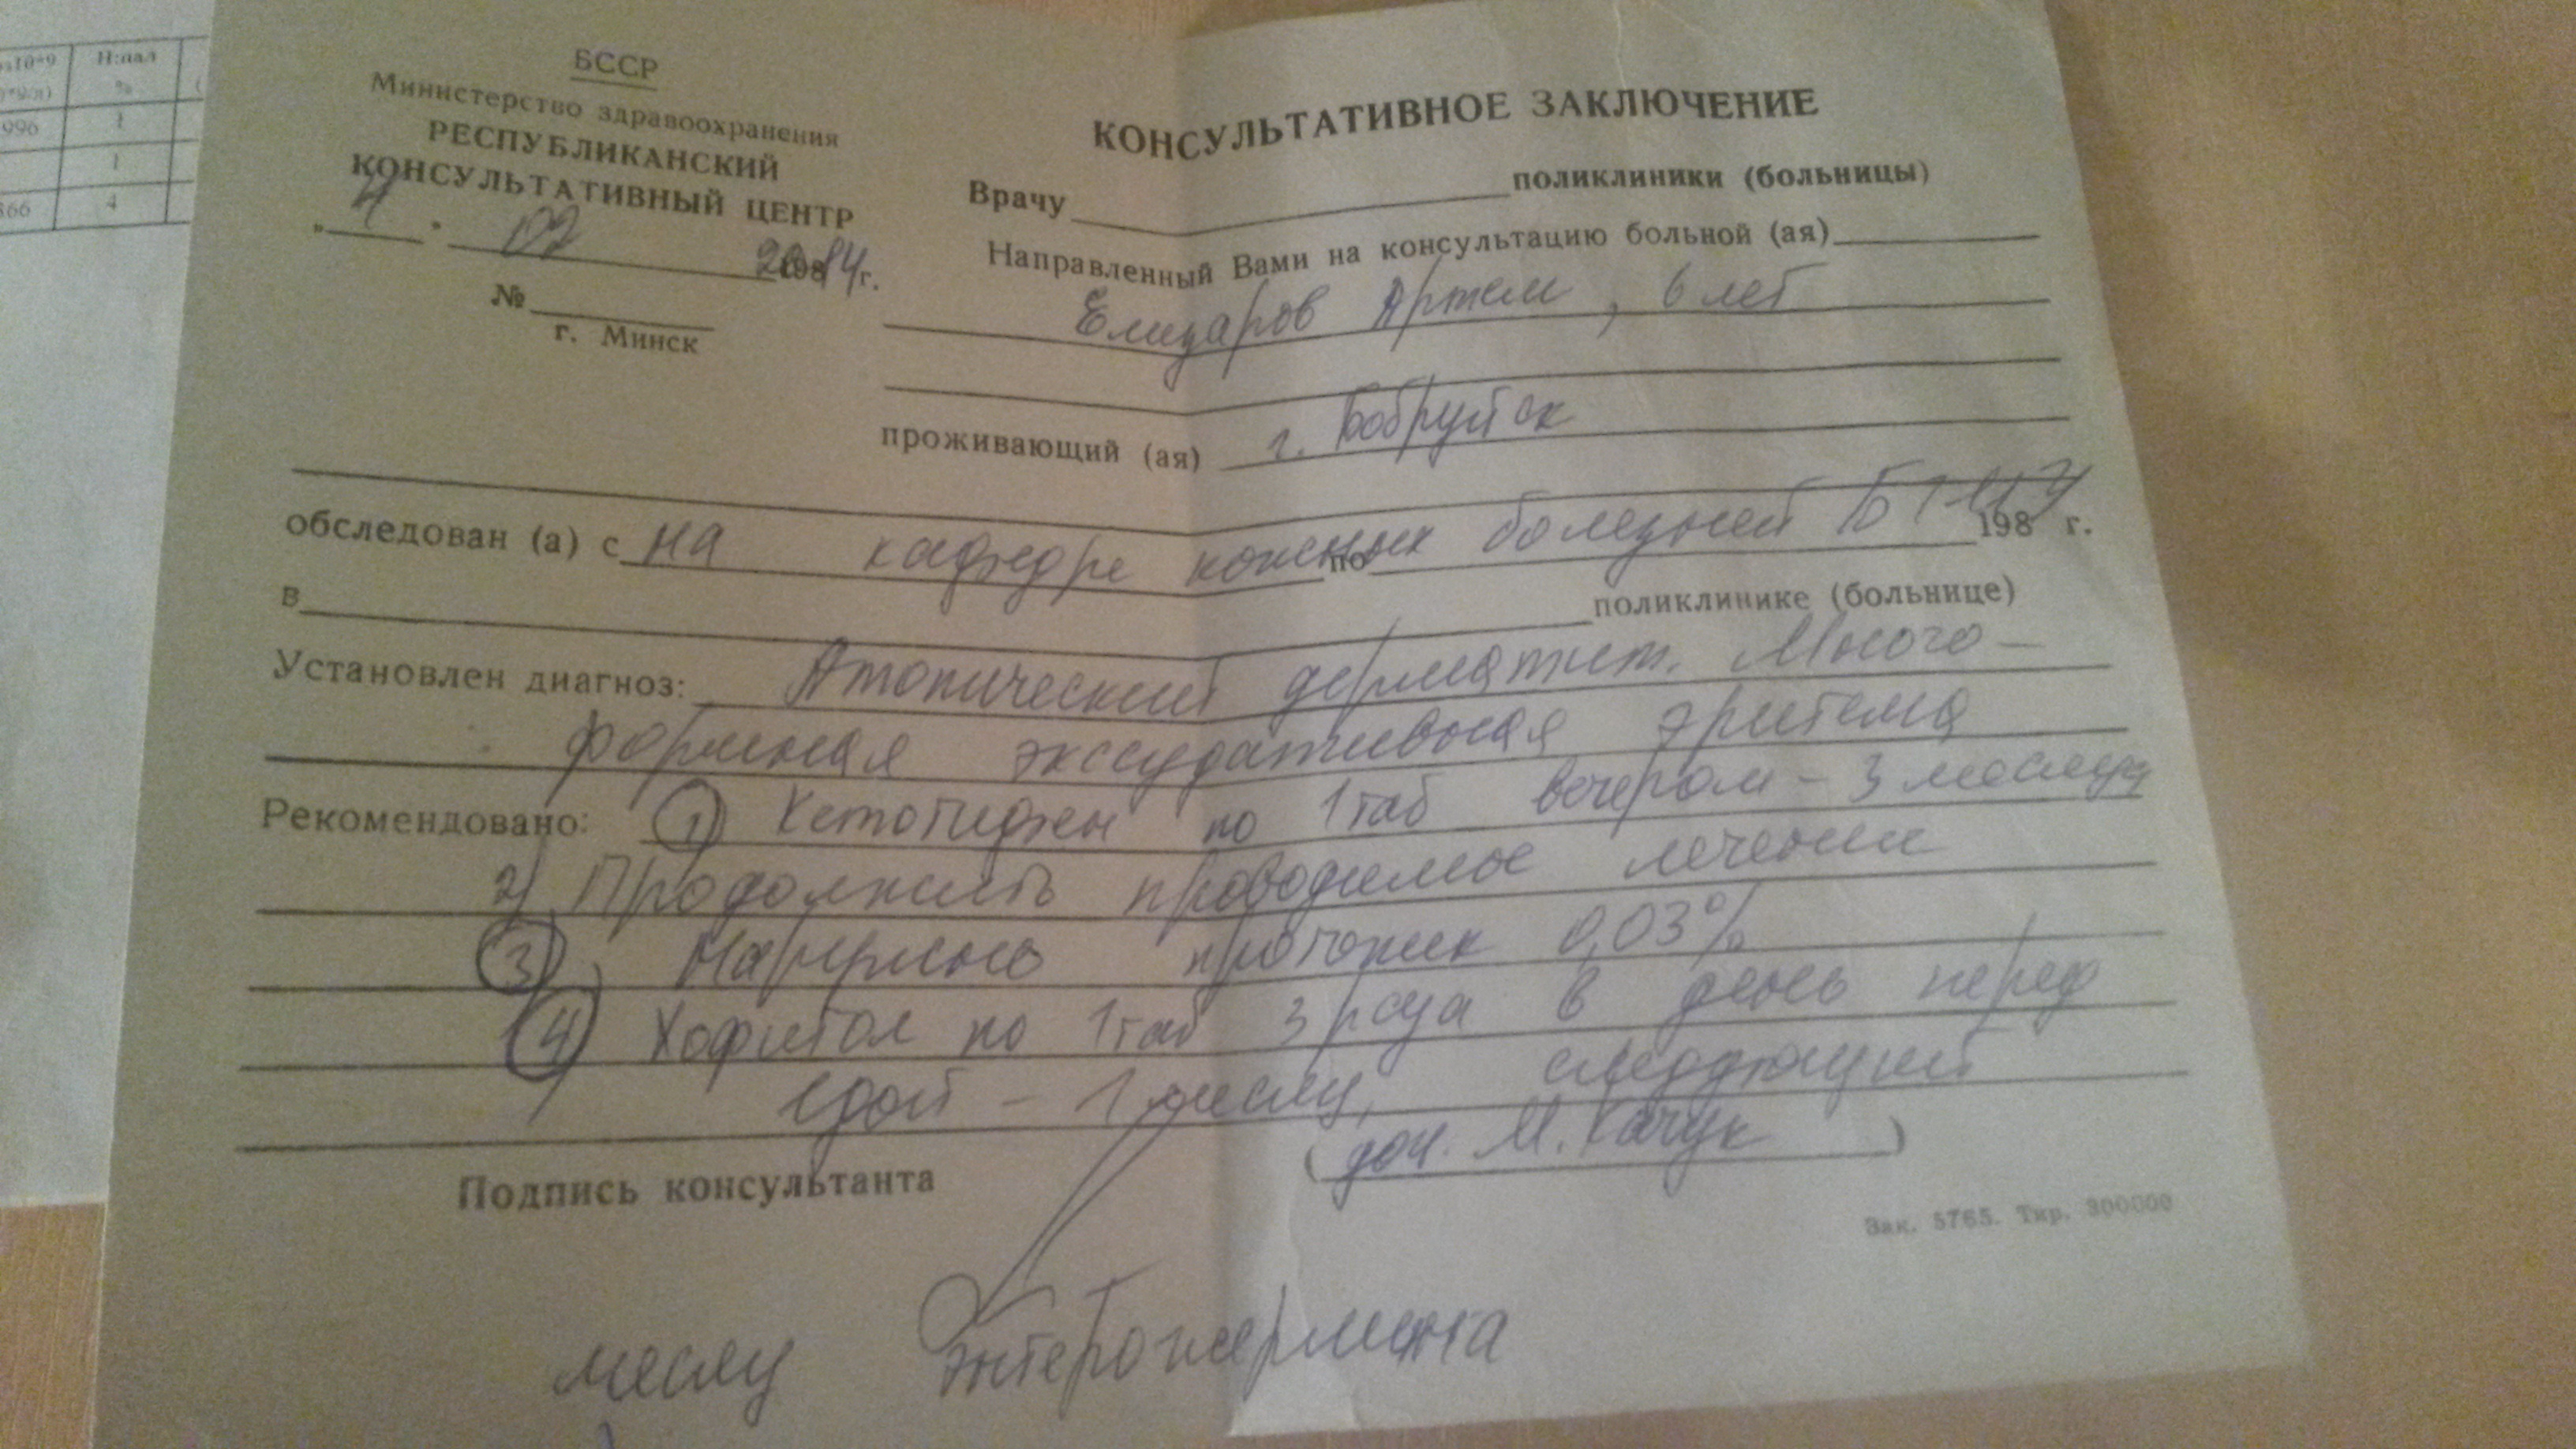 БССР
Министерство здравоохранения
РЕСПУБЛИКАНСКИЙ
КОНСУЛЬТАТИВНЫЙ ЦЕНТР
" 4 " 02 2014 г.
№
г. Минск
КОНСУЛЬТАТИВНОЕ ЗАКЛЮЧЕНИЕ
Врачу поликлиники (больницы)
Направленный Вами на консультацию больной (ая)
Елизаров Артем, 6 лет
проживающий (ая) г. Бобруйск
обследован (а) с на кафедре кожных по болезней БГМУ 198 г.
в поликлинике (больнице)
Установлен диагноз: Атопический дерматит. Много-
формная экссудативная эритема
Рекомендовано: 1) Кетотифен по 1 таб вечером - 3 месяца
2) Продолжить проводимое лечение
3) Наружно протопик 0,03%
4) Хофитол по 1 таб 3 раза в день перед
едой - 1 месяц, следующий
Подпись консультанта (доц. М. Качук)
Зак. 5765. Тир. 300000
месяц энтерожермина
Н:пал
%
996 1
1
366 4